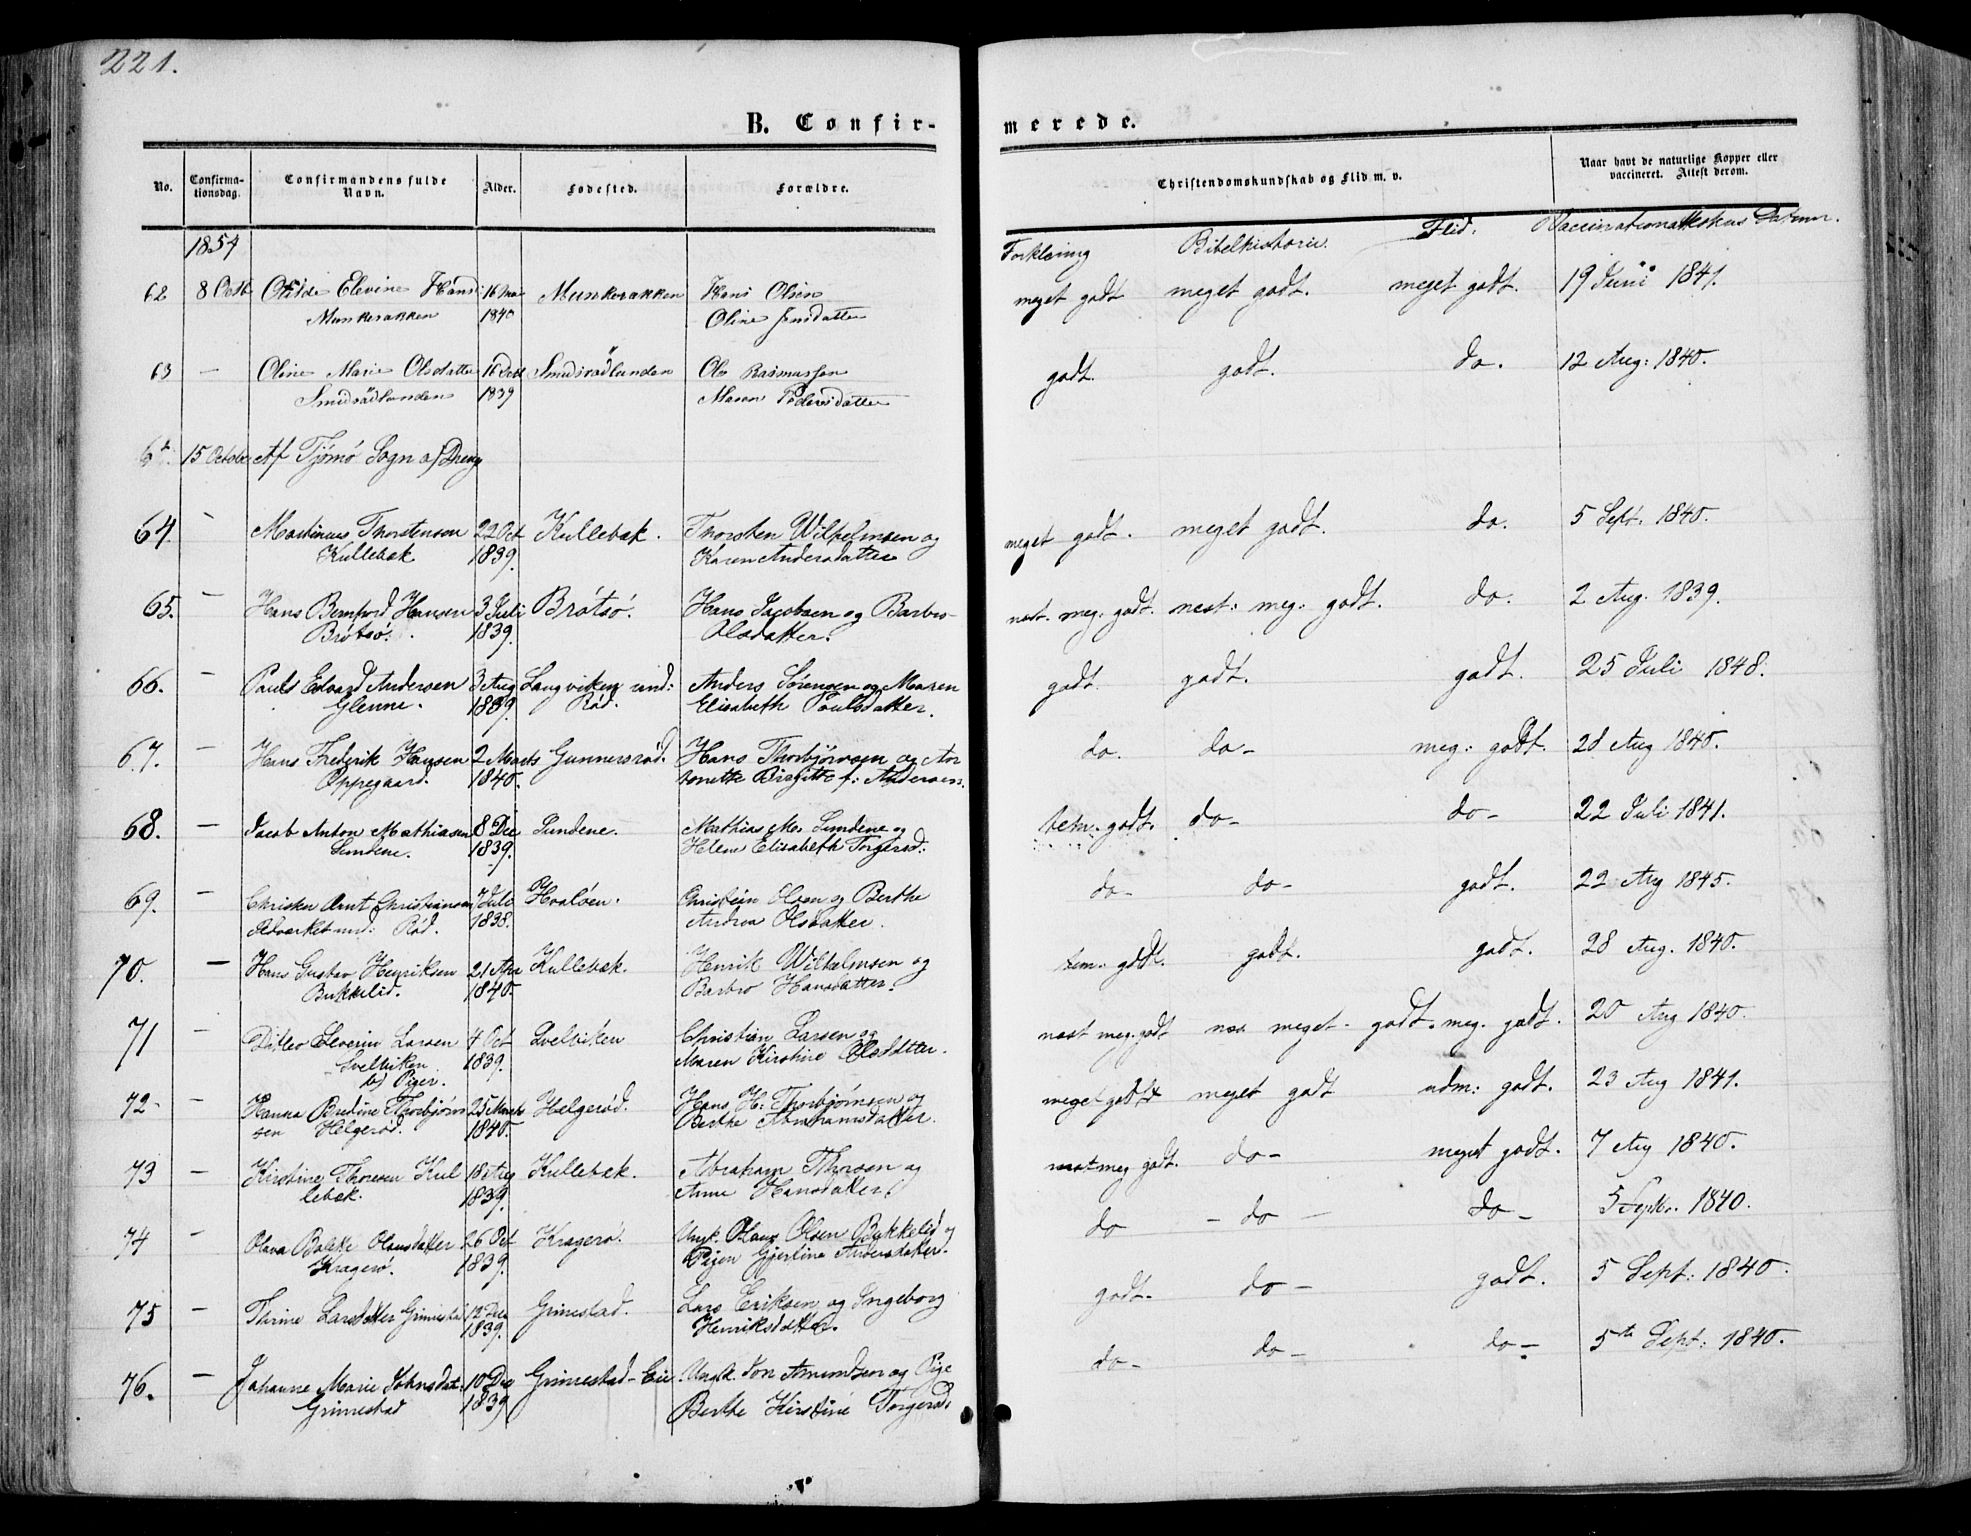 221.
B. Confir-
merede.
No.
Confirma-
tionsdag.
Confirmandens fulde
Navn.
Alder.
Fødested.
Forældre.
Christendomskundskab og Flid m. v.
Naar havt de naturlige Kopper eller
vaccineret. Attest derom.
1854
Forklaring Bibelhistorie. Flid.
62 8 Octb Elevine Hansd 16 Mai Munkerakken Hans Olsen meget godt meget godt. meget godt. 19 Juni 1841.
Munkerakken 1840 Oline Jensdatter
63 — Oline Marie Olsdatter 16 Smidsrødlunden Ole Rasmussen godt. godt. do. 12 Aug: 1840.
Smidsrødlunden 1839 Maren Pedersdatter
15 Octobr Af Tjømø Sogn a/ Dreng
64. - Martinus Thorstensen 22 Oct Kullebæk. Thorsten Wilhelmsen og meget godt. meget godt. do. 5 Sept. 1840.
Kullebæk 1839. Karen Andersdatter
65. — Hans Hansen 3 Juli Brøtsø. Hans Jacobsen og Barbro nest. meg: godt. nest: meg: godt. do. 2 Aug. 1839.
Brøtsø. 1839. Olsdatter.
66. — Edvard Andersen 3 Aug Langviken und: Anders Sørensen og Maren godt. godt. godt. 25 Juli 1848.
Glenne. 1839. Rød. Elisabeth Poulsdatter.
67. — Hans Frederik Hansen 2 Marts Gunnersrød. Hans Thorbjørnsen og An do. do- meg: godt. 28 Aug 1840.
Oppegaard. 1840. tonette Birgitte f: Andersen.
68. — Jacob Anton Mathiasen 8 Dec Sundene. Mathias Sundene og godt. do- do- 22 Juli 1841.
Sundene. 1839. Helene Elisabeth
69. — Arnt Christiansen 7 Juli Hvaløen. Olsen og Berthe do- do- godt. 22 Aug 1845.
und: Rød. 1838. Andrea Olsdatter.
70. — Hans Gustav Henriksen 21 Apr Kullebæk. Henrik Wilhelmsen og tem. godt. godt. godt. 28 Aug. 1840.
Bukkelid. 1840. Barbro Hansdatter.
71 - Ditlev Severin Larsen 4 Oct Svelviken Christian Larsen og nest meg. godt meget godt. meg. godt. 20 Aug 1840.
Svelviken. 1839. Maren Kirstine Olsdatter.
b) Piger.
72- - Hanna Bredine Thorbjørn 25 Marts Helgerød. Hans H: Thorbjørnsen og meget godt meget godt udm: godt. 23 Aug 1841.
sen Helgerød. 1840. Berthe Abrahamsdatter.
73 — Kirstine Thoresen Kul 18 Aug Kullebæk. Abraham Thorsen og nest meg godt. do- meget godt. 7 Aug 1840.
lebæk. 1839. Anne Hansdatter.
74 - Olava Olausdatter 26 Oct Kragerø. Ungk. Olaus Olsen Bukkelid og do - do - do - 5 Septbr. 1840.
Kragerø. 1839. Pigen Gjertine Andersdatter.
75 — Thrine Larsdatter Grimestad 12 Dec Grimestad. Lars Eriksen og Ingeborg godt. do - godt. 5 Sept: 1840.
1839. Henriksdatter.
76. — Johanne Marie Johnsdat. 10 Dec Grimestad-Eie Ungk. Jon Amundsen og Pige do- do- do- 5te Sept: 1840.
Grimestad 1839 Berthe Kirstine